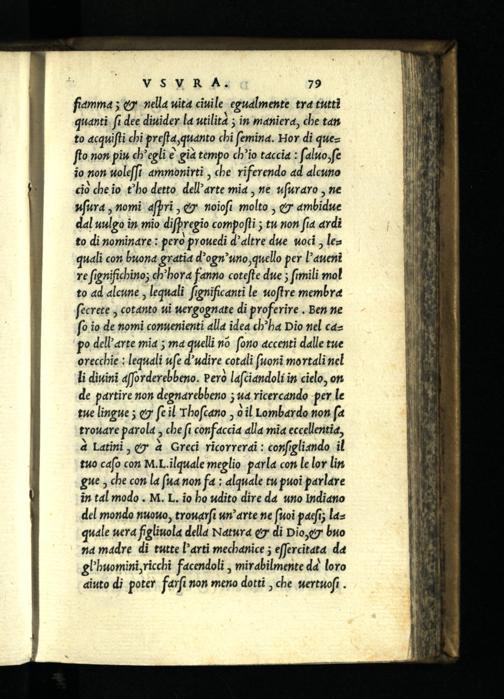 VSVRA. 79
fiamma; & nella uita ciuile egualmente tra tutti
quanti si dee diuider la utilità; in maniera, che tan
to acquisti chi presta, quanto chi semina. Hor di que-
sto non piu ch'egli è già tempo ch'io taccia: saluo, se
io non uolessi ammonirti, che riferendo ad alcuno
ciò che io t'ho detto dell'arte mia, ne usuraro, ne
usura, nomi aspri, & noiosi molto, & ambidue
dal uulgo in mio dispregio composti; tu non sia ardi
to di nominare: però prouedi d'altre due uoci, le-
quali con buona gratia d'ogn'uno, quello per l'aueni
re significhino; ch'hora fanno coteste due; simili mol
to ad alcune, lequali significanti le uostre membra
secrete, cotanto ui uergognate di proferire. Ben ne
so io de nomi conuenienti alla idea ch'ha Dio nel ca-
po dell'arte mia; ma quelli nō sono accenti dalle tue
orecchie: lequali use d'udire cotali suoni mortali nel
li diuini assorderebbeno. Però lasciandoli in cielo, on
de partire non degnarebbeno; ua ricercando per le
tue lingue; & se il Thoscano, ò il Lombardo non sa
trouare parola, che si confaccia alla mia eccellentia,
à Latini, & à Greci ricorrerai: consigliando il
tuo caso con M.L. ilquale meglio parla con le lor lin
gue, che con la sua non fa: alquale tu puoi parlare
in tal modo. M. L. io ho udito dire da uno Indiano
del mondo nuouo, trouarsi un'arte ne suoi paesi; la-
quale uera figliuola della Natura & di Dio, & buo
na madre di tutte l'arti mechanice; essercitata da
gl'huomini, ricchi facendoli, mirabilmente dà loro
aiuto di poter farsi non meno dotti, che uertuosi.